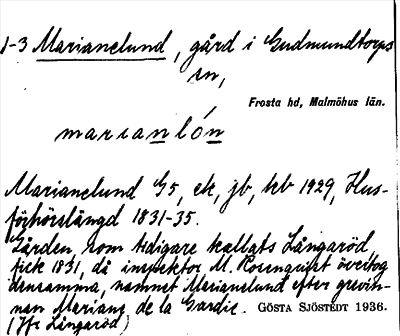 1-3 Marianelund, gård i Gudmundtorps
sn,
Frosta hd, Malmöhus län.
marianlón
Marianelund G5, ek, jb, kb 1929, Hus-
förhörslängd 1831-35.
Gården, som tidigare kallats Långaröd,
fick 1831, då inspektor M. Rosenquist övertog
densamma, namnet Marianelund efter grevin-
nan Mariane de la Gardie. GÖSTA SJÖSTEDT 1936.
(Jfr Långaröd)